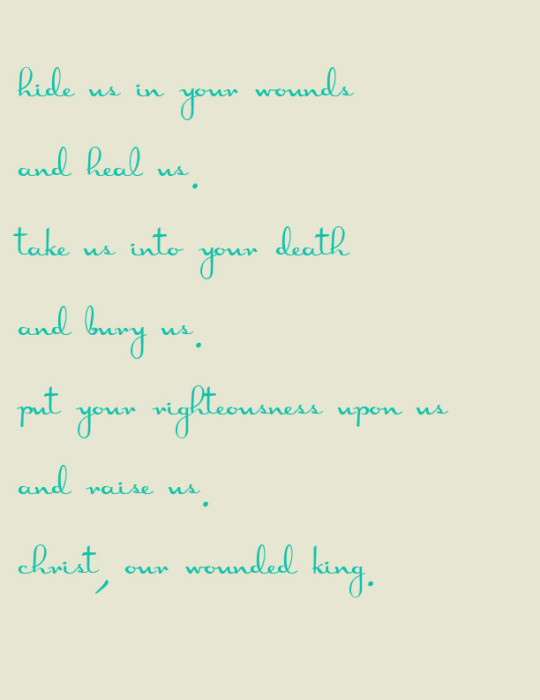 hide us in your wounds
and heal us.
take us into your death
and bury us.
put your righteousness upon us
and raise us.
christ, our wounded king.